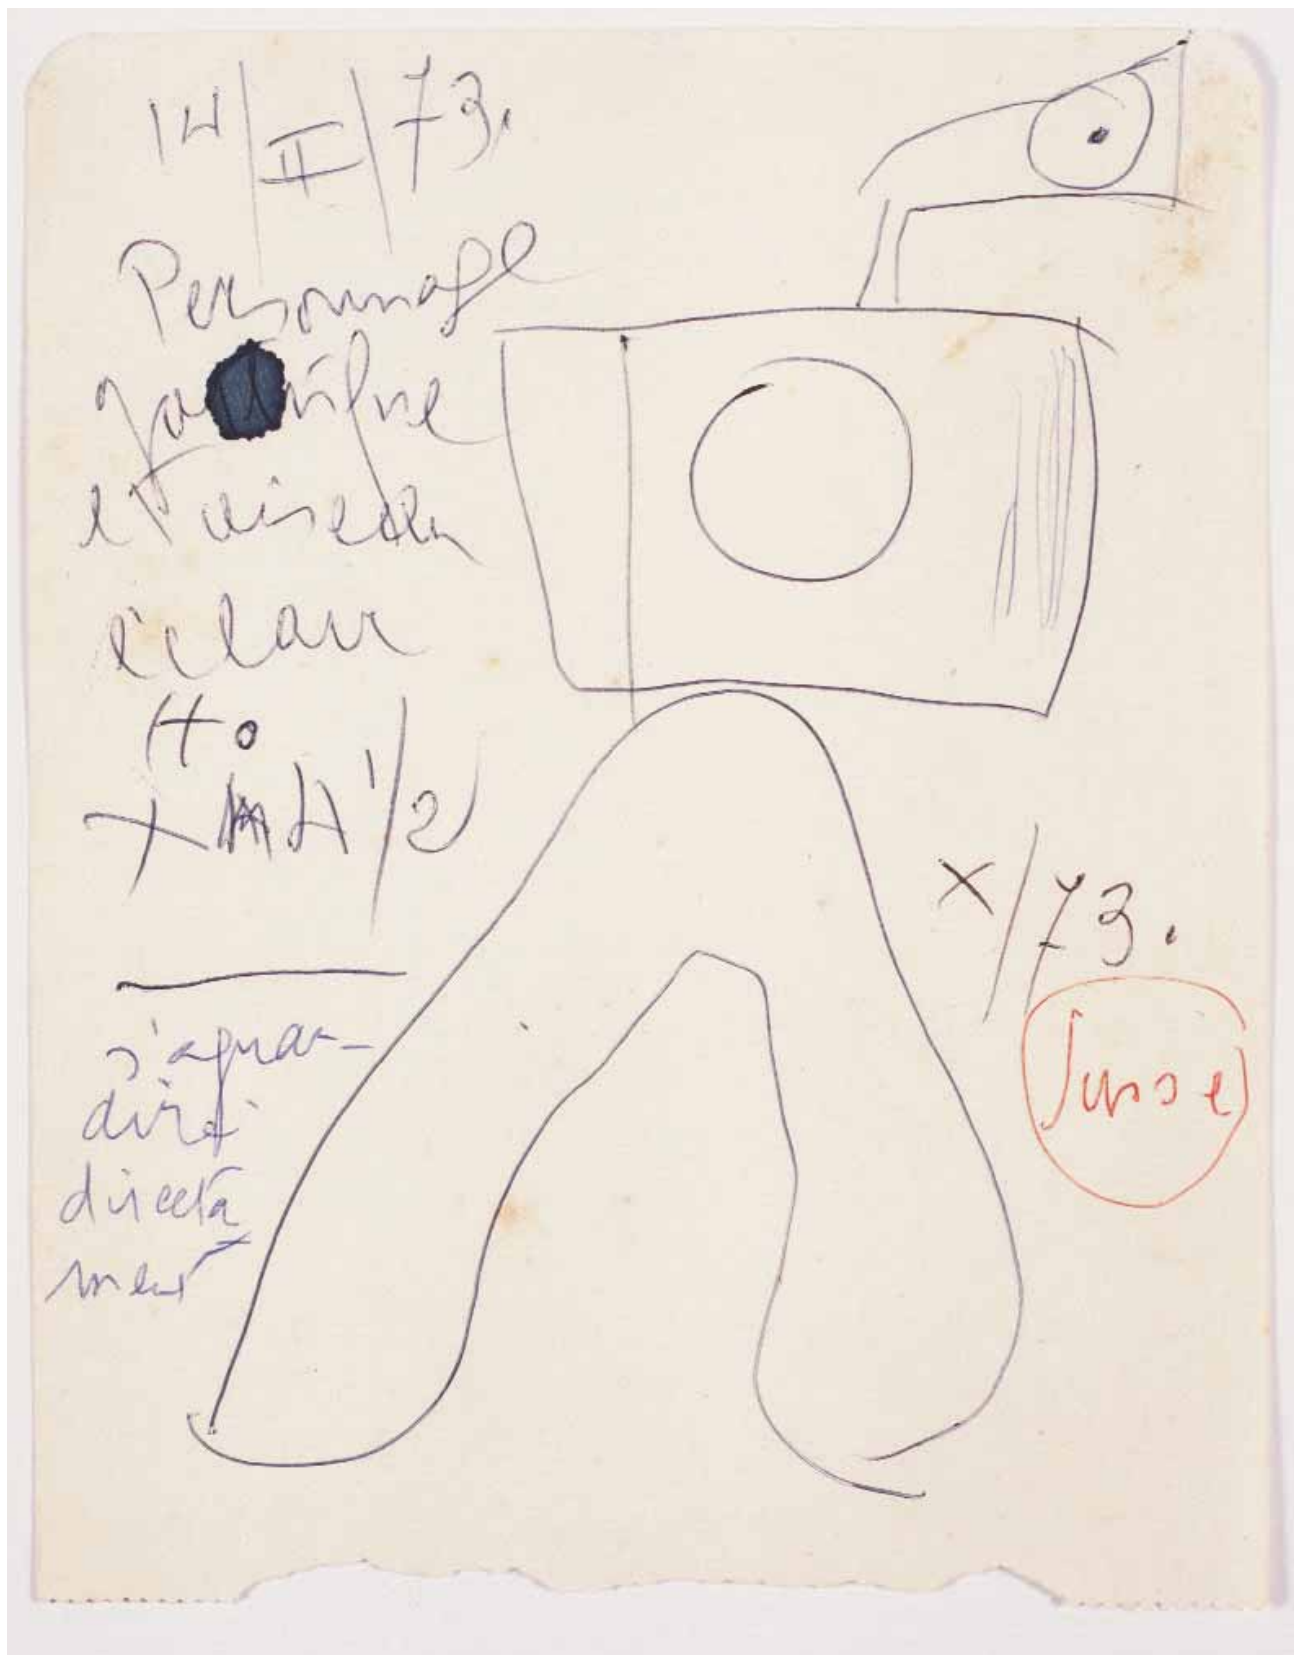 14/II/73.
Personnage
gothique
et oiseau
éclair
s'agran-
dirà
directa
ment
X/73.
Susse